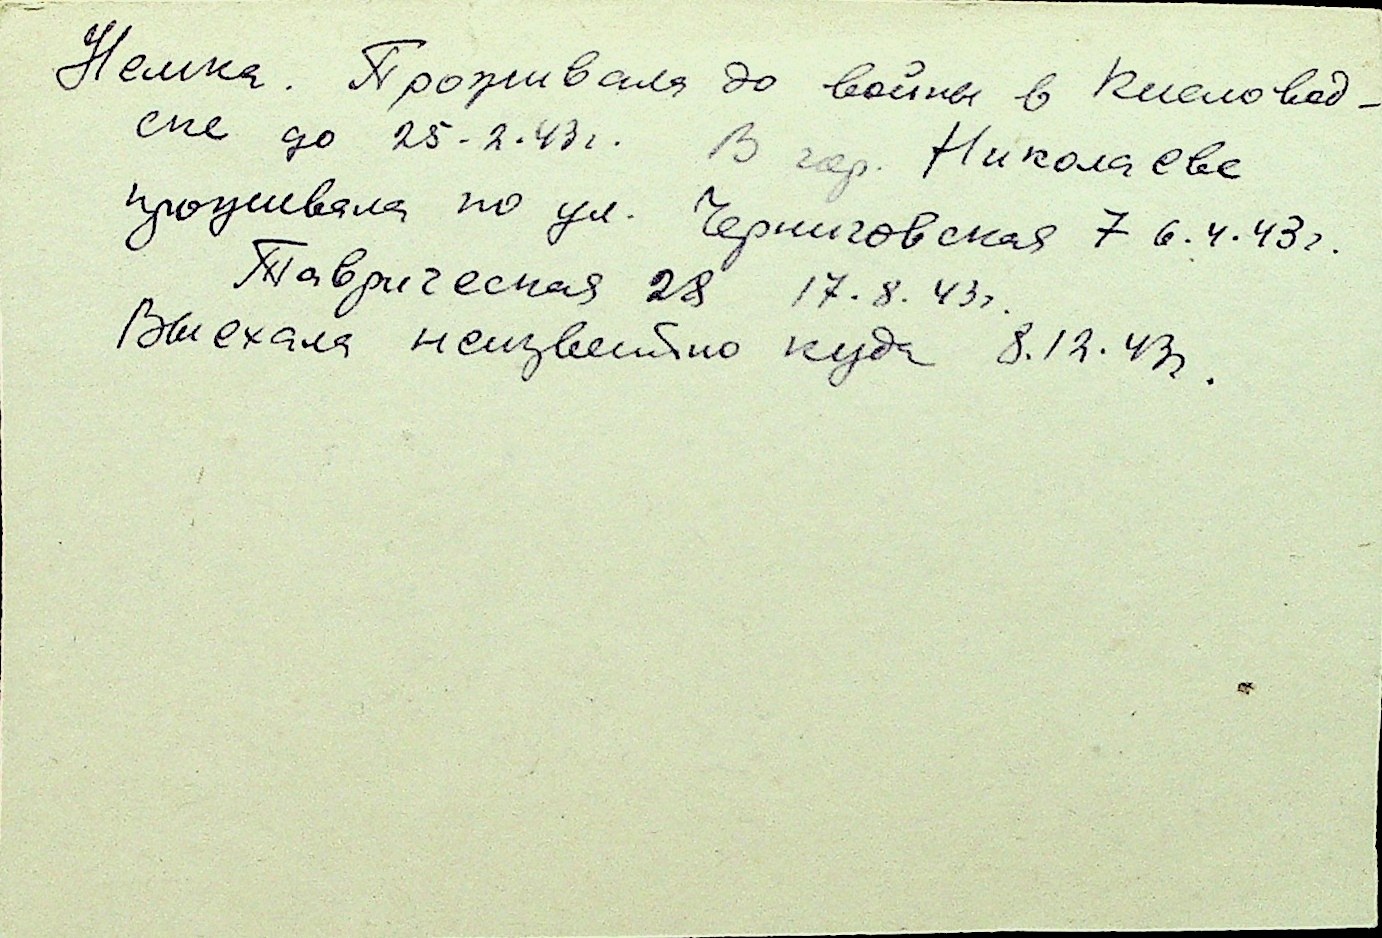 Немка. Проживала до войны в Кисловод-
ске до 25-2.43г. В гор. Николаеве
проживала по ул. Черниговская 7 6.4.43г.
Таврическая 28 17.8.43г.
Выехала неизвестно куда 8.12.43г.